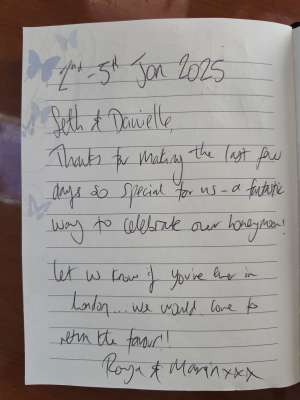 2nd - 5th Jan 2025
Seth & Danielle,
Thanks for making the last few
days so special for us - a fantastic
way to celebrate our honeymoon!
Let us know if you're ever in
London... we would love to
return the favour!!
& xxx